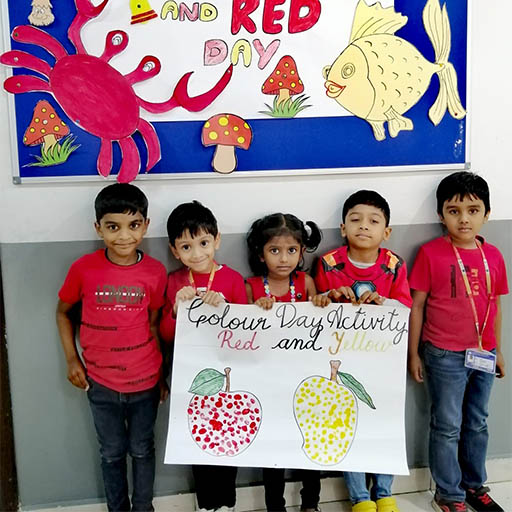 AND RED
DAY
LONDON
Colour Day Activity
Red and Yellow